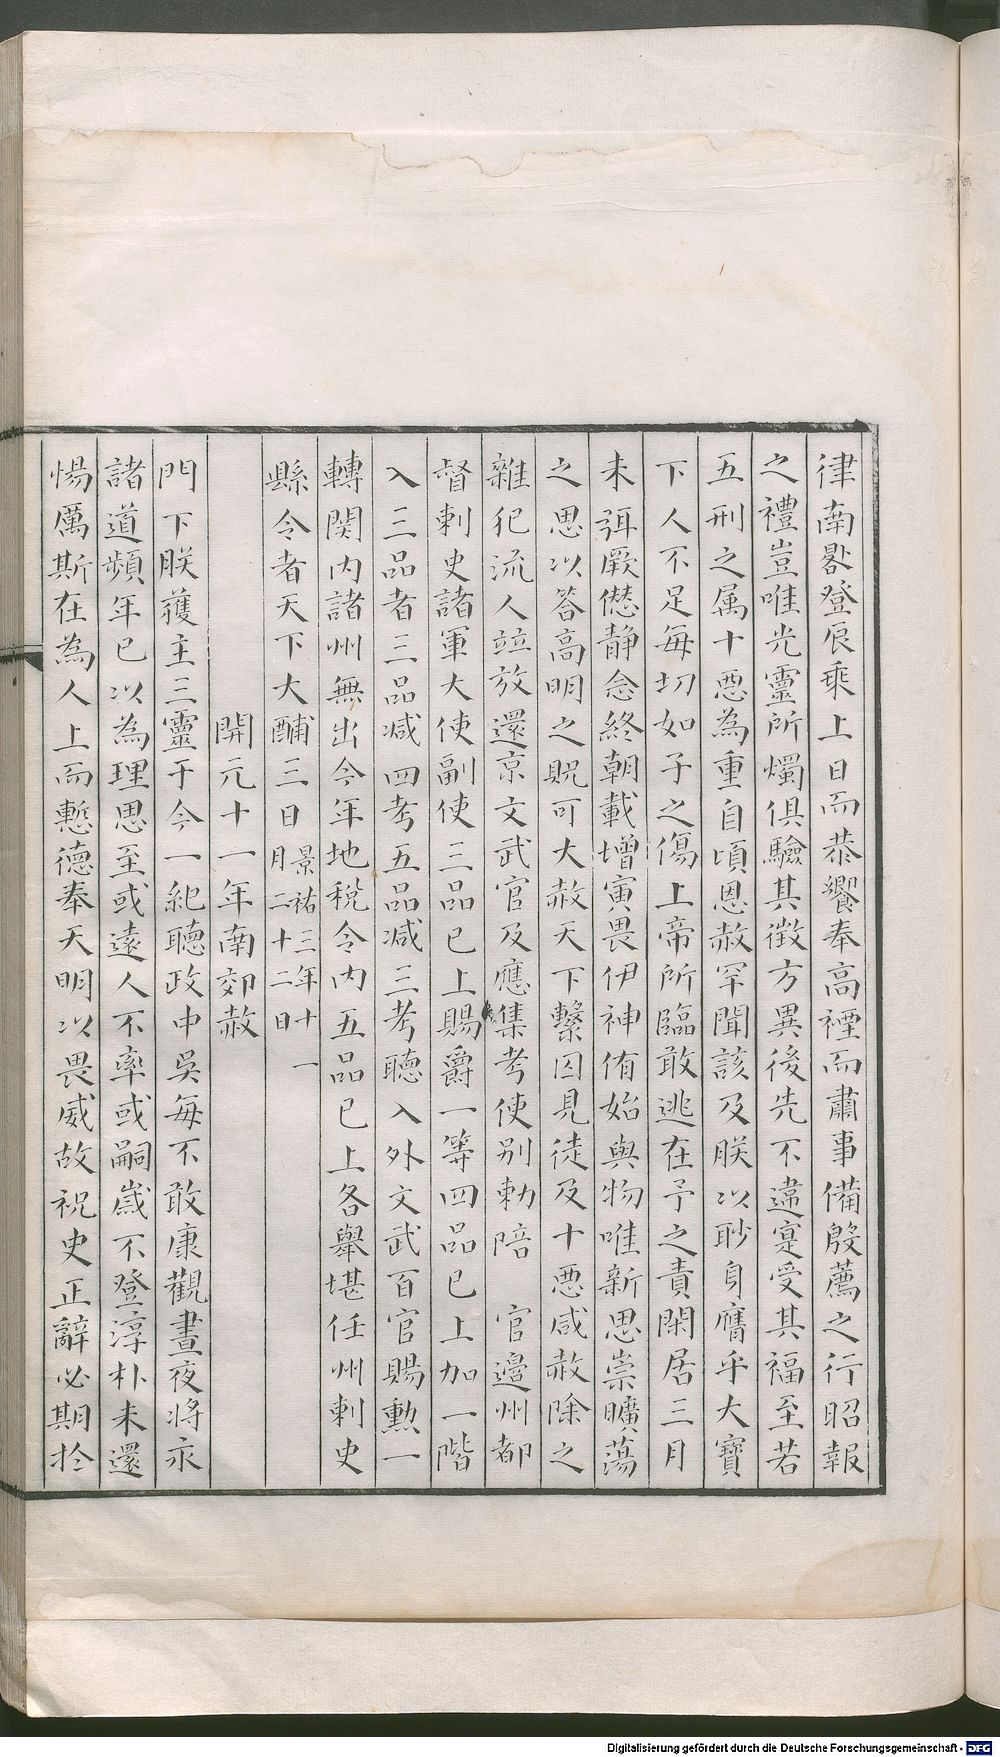 律南晷登辰乘上日而恭饗奉高禋而肅事備殷薦之行昭報
之禮豈唯光靈所燭俱驗其徵方異後先不違寔受其福至若
五刑之属十惡為重自頃恩赦罕聞該及朕以眇身膺乎大寶
下人不足每切如子之傷上帝所臨敢逃在予之責閑居三月
未弭厥愆静念終朝載增寅畏伊神侑始與物唯新思崇曠蕩
之恩以答高明之貺可大赦天下繫囚見徒及十惡咸赦除之
雜犯流人竝放還京文武官及應集考使别勅陪　官邉州都
督刺史諸軍大使副使三品已上賜爵一等四品已上加一階
入三品者三品减四考五品减三考聽入外文武百官賜勲一
轉関内諸州無出今年地稅令内五品已上各舉堪任州刺史
縣令者天下大酺三日景祐三年十一
月二十二日
開元十一年南郊赦
門下朕䕶主三靈于今一紀聽政中吳每不敢康觀晝夜將亦
諸道頻年已以為理思至或遠人不率或嗣嵗不登淳朴未還
惕厲斯在為人上而慙德奉天明以畏威故祝史正辭必期扵
Digitalisierung gefördert durch die Deutsche Forschungsgemeinschaft - DFG